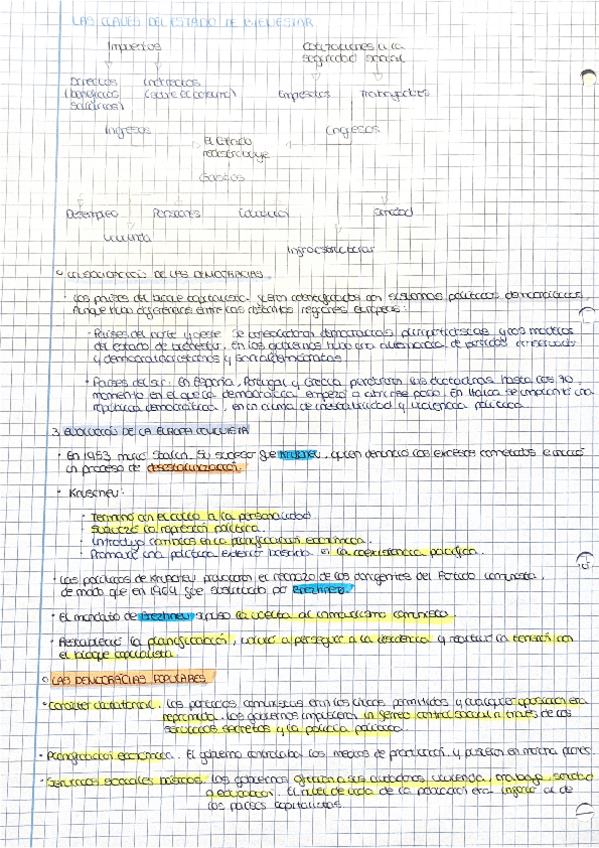 LAS CLAVES DEL ESTADO DE BIENESTAR
Impuestos Cotizaciones a la
seguridad social
Directos Indirectos
(beneficios
salarios) Empresas Trabajadores
Ingresos Ingresos
El Estado
redistribuye
Gastos
Desempleo Pensiones Sanidad
Vivienda
Infraestructuras
CONSOLIDACIÓN DE LAS DEMOCRACIAS
· Los países del bloque capitalista con sistemas políticos democráticos,
Aunque hubo diferencias entre las distintas regiones europeas:
· Países del norte y oeste. Se consolidaron democracias pluripartidistas y los modelos
del estado de bienestar, en los que hubo una alternancia de partidos
y democratacristianos y socialdemócratas
· Países del sur. En España, Portugal y Grecia perduraron las dictaduras hasta los 70,
momento en el que la democracia empezó a abrirse paso. En Italia se implantó una
república democrática, en un clima de inestabilidad y violencia política.
3. EVOLUCIÓN DE LA EUROPA COMUNISTA
· En 1953 murió Stalin. Su sucesor fue Kruschev, quien denunció los excesos cometidos e inició
un proceso de desestalinización.
· Kruschev:
· Terminó con el culto a la personalidad
· Suavizó la represión política.
· Introdujo cambios en la planificación económica.
· Promovió una política exterior basada en la coexistencia pacífica.
· Las políticas de Kruschev provocaron el rechazo de los dirigentes del Partido comunista,
de modo que en 1964 fue sustituido por Brezhnev.
· El mandato de Brezhnev supuso la vuelta al inmovilismo comunista.
· Restableció la planificación, volvió a perseguir a la disidencia y reactivó la tensión con
el bloque capitalista.
LAS DEMOCRACIAS POPULARES
· Carácter dictatorial. Los partidos comunistas eran los únicos permitidos y cualquier oposición era
reprimida. Los gobiernos impusieron un férreo control social a través de los
servicios secretos y la policía política.
· Planificación económica. El gobierno controlaba los medios de producción y
· Servicios sociales básicos. Los gobiernos ofrecían a sus ciudadanos vivienda, trabajo, sanidad
y educación. El nivel de vida de la población era inferior al de
los países capitalistas.